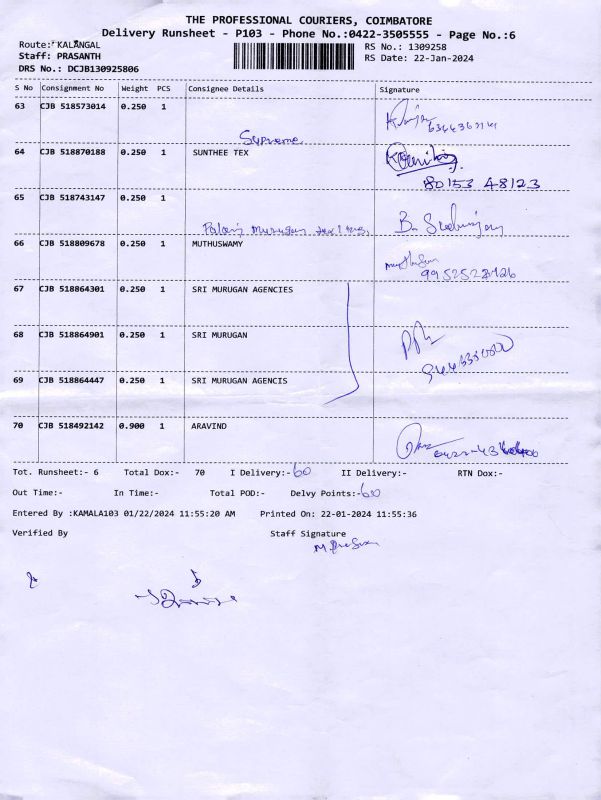 THE PROFESSIONAL COURIERS, COIMBATORE
Delivery Runsheet - P103 - Phone No.:0422-3505555 - Page No.:6
Route: KALANGAL RS No.: 1309258
Staff: PRASANTH RS Date: 22-Jan-2024
DRS No.: DCJB130925806
S No Consignment No Weight PCS Consignee Details Signature
63 CJB 518573014 0.250 1
Supreme
64 CJB 518870188 0.250 1 SUNTHEE TEX
80153 48123
65 CJB 518743147 0.250 1
Palani Murugan
66 CJB 518809678 0.250 1 MUTHUSWAMY
67 CJB 518864301 0.250 1 SRI MURUGAN AGENCIES
68 CJB 518864901 0.250 1 SRI MURUGAN
69 CJB 518864447 0.250 1 SRI MURUGAN AGENCIS
70 CJB 518492142 0.900 1 ARAVIND
Tot. Runsheet:- 6 Total Dox:- 70 I Delivery:- 60 II Delivery:- RTN Dox:-
Out Time:- In Time:- Total POD:- Delvy Points:- 60
Entered By :KAMALA103 01/22/2024 11:55:20 AM Printed On: 22-01-2024 11:55:36
Verified By Staff Signature